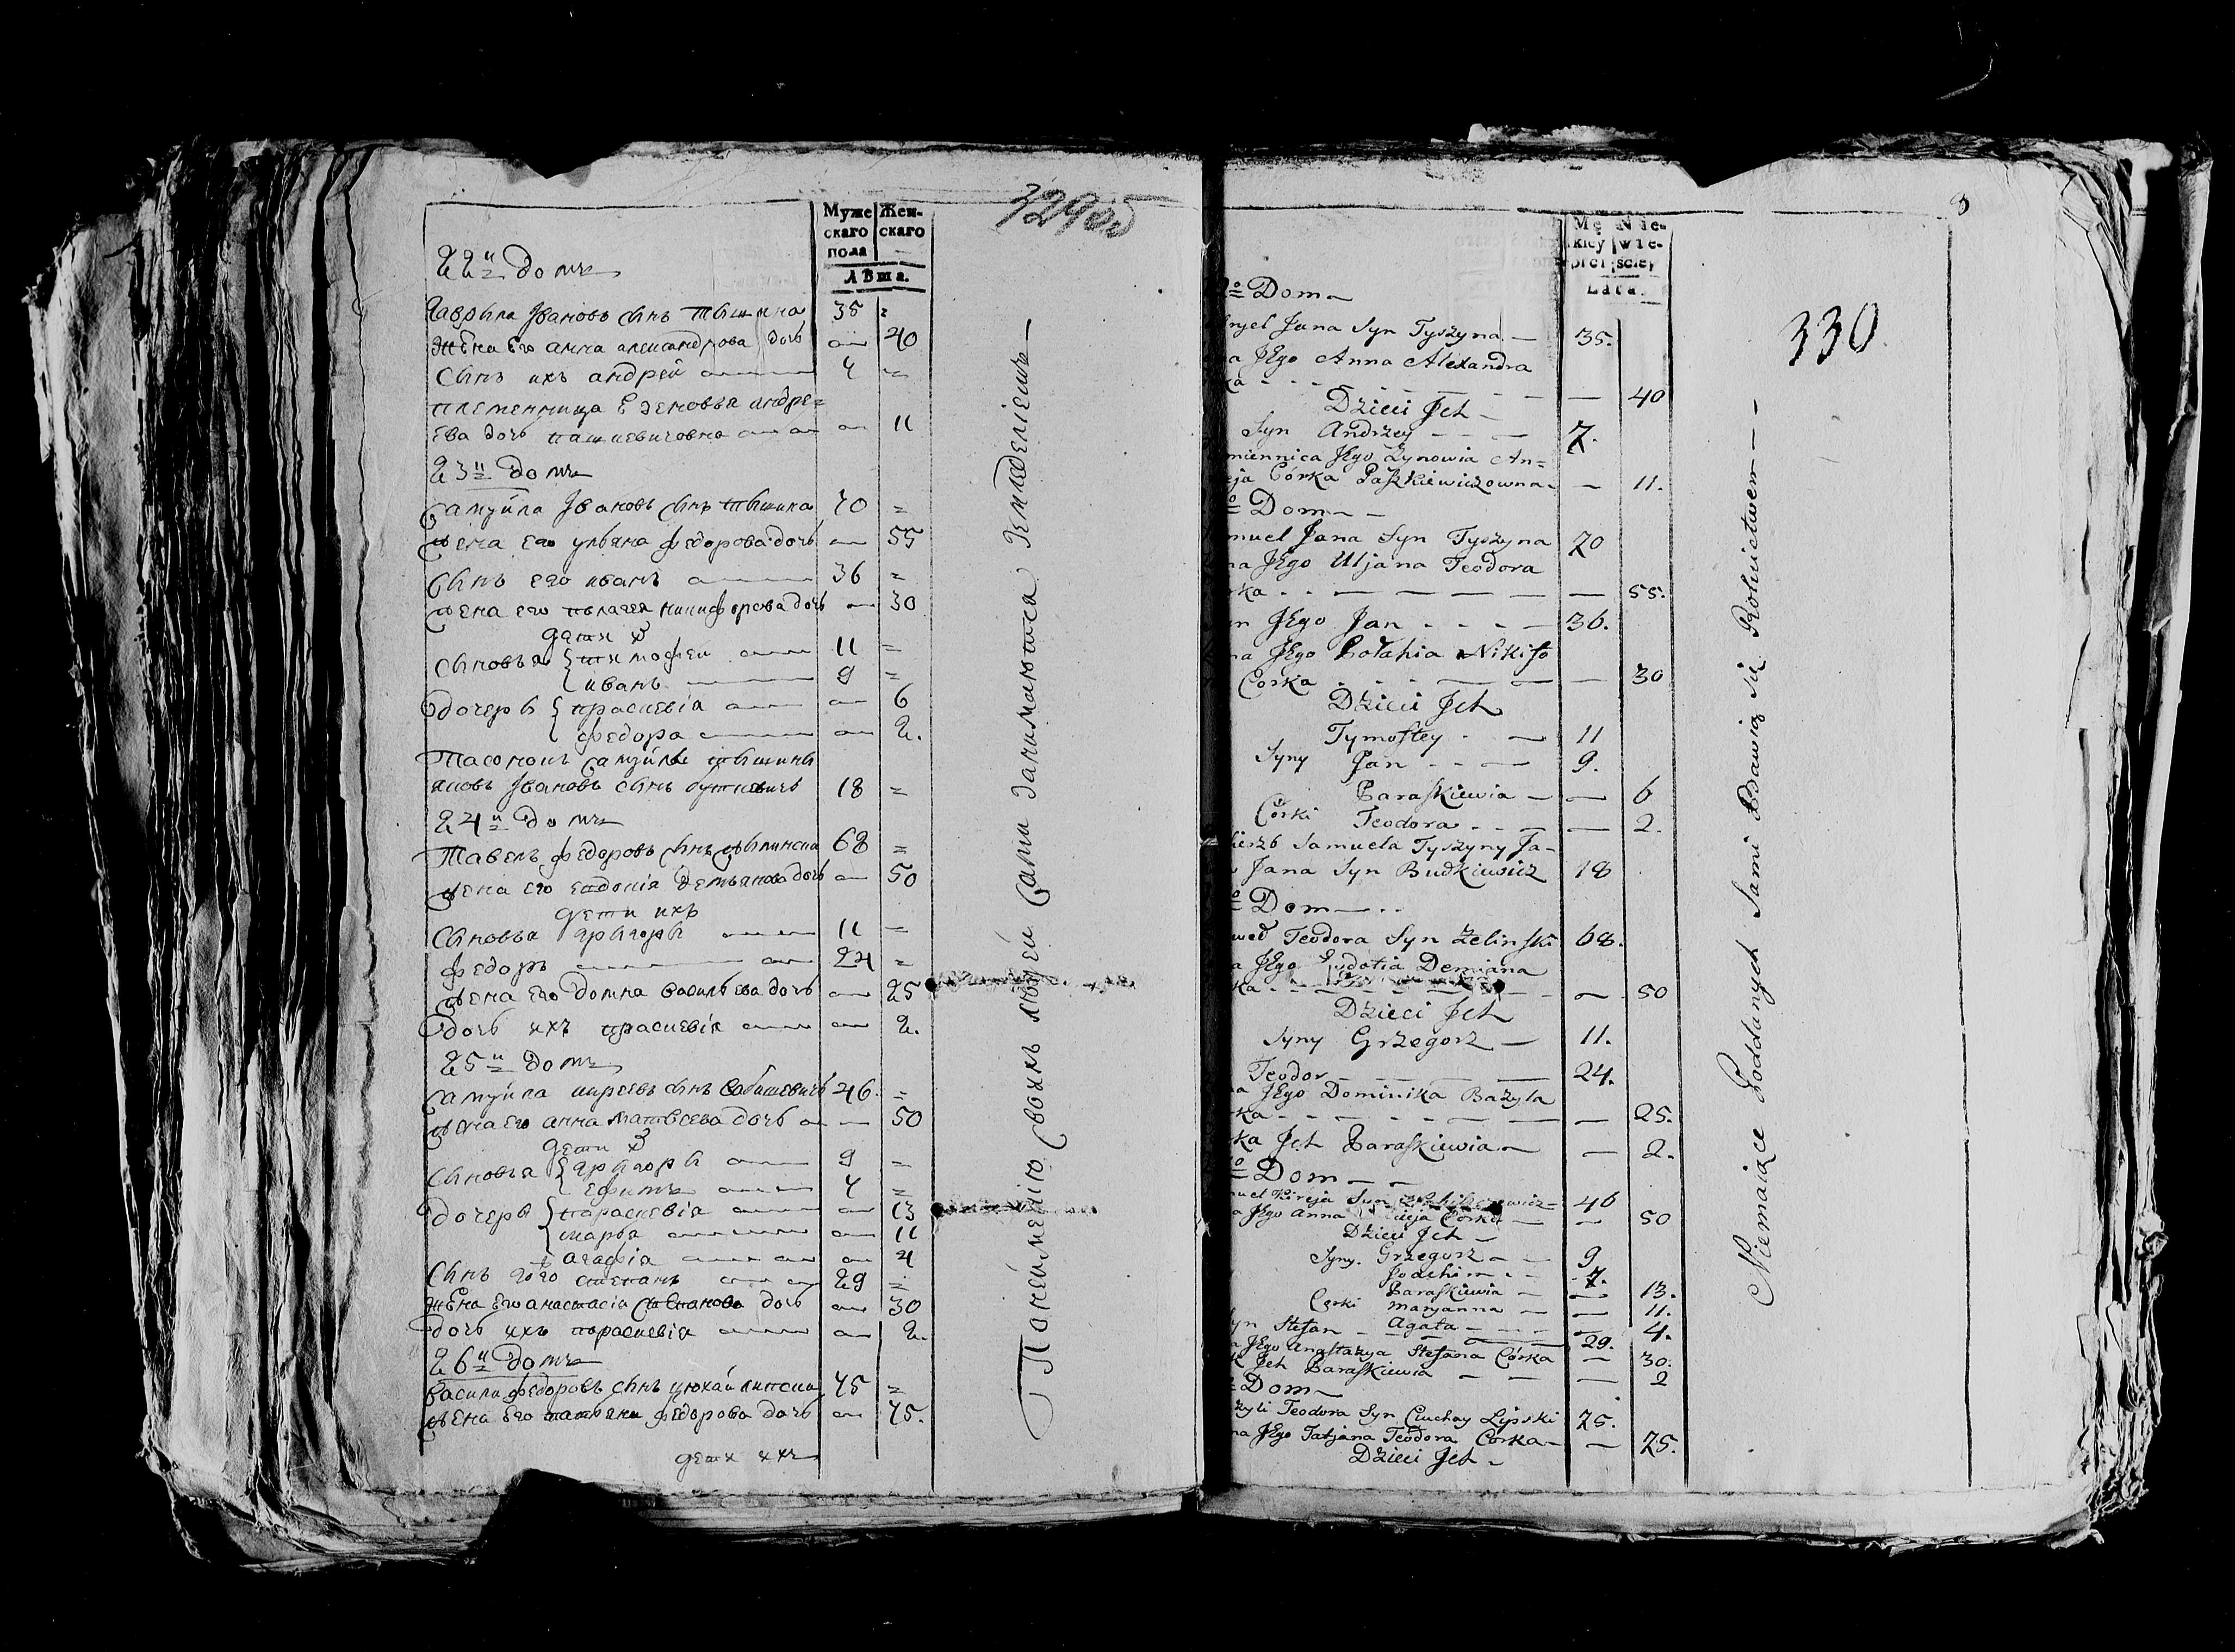 329об
Муже Жен-
скаго скаго
пола
Лѣта.
22й домъ
Гаврыла Ивановъ сынъ тышына 35 =
жена его анна александрова дочь — 40
сынъ ихъ андрей — 7 =
племенница Езеновья андре=
ева дочь пашкевичовна — 11
23й домъ
Самуйла Ивановъ сынъ тышина 70 =
жена его ульяна федорова дочь — 55
сынъ его иванъ — 36 =
жена его пылагея никифорова дочь — 30
дети
сыновья тимофеи — 11 =
иванъ — 9 =
дочеры прасковія — 6
федора — 2.
Самуйлы тышины
яковъ Ивановъ сынъ буткевичъ 18 =
24й домъ
Павелъ федоровъ сынъ жылински 68 =
жена его евдокія демьянова дочь — 50
дети ихъ
сыновья грыгоры — 11 —
федоръ — 24 =
жена его домна васильева дочь — 25
дочь ихъ прасковія — 2.
25й домъ
Самуйла киреевъ сынъ 46 =
жена его анна матвѣева дочь — 50
дети
сыновья грыгоры — 9 =
ефимъ — 7 =
дочеры параскевія — 13
марья — 11
агафія — 4
сынъ его степанъ — 29 =
жена его анастасія степанова дочь — 30
дочь ихъ параскевія — 2.
26й домъ
Васили федоровъ сынъ цюхай липски 75 =
жена его татьяна федорова дочь — 75.
дети ихъ
Понеимѣнію своихъ людей сами занимаются земледѣліемъ —
Mę Nie-
kiey wie-
płci sciey
Lata.
330
o Dom
ryel Jana Syn Tyszyna — 35.
a Jego Anna Alexandra
ka — — 40
Dzieci Jch —
Syn Andrzey — — 7.
miennica Jego Zynowia An=
eja Córka Paszkiewiczowna — 11.
o Dom — —
muel Jana Syn Tyszyna 70
na Jego Uljana Teodora
rka — — 55.
n Jego Jan — 36.
na Jego Połahia Nikifo
Corka — — 30
Dzieci Jch
Tymoftey — 11
Syny Jan — — 9.
Paraskiewia — — 6
Córki Teodora — — 2.
Samuela Tyszyny Ja-
Jana Syn Budkiewicz 18
o Dom — —
weł Teodora Syn Żelinski 68.
a Jego Eudotia Demiana
ka — — 50
Dzieci Jch
Syny Grzegorz — 11.
Teodor — 24.
na Jego Dominika Bazyla
rka — — 25.
ka Jch Paraskiewia — — 2.
o Dom — —
muel Kireja Syn 46
a Jego Anna Corka — — 50
Dzieci Jch —
Syny. Grzegorz — — 9
Joachim — — 7.
Paraskiewia — — 13.
Corki Maryanna — — 11.
Agata — — 4.
yn Stefan — 29.
a Jego Anastazya Stefana Córka — 30.
k Jch Paraskiewia — — 2
o Dom
zyli Teodora Syn Ciuchay Lipski 75.
na Jego Tatjana Teodora Corka — — 75.
Dzieci Jch —
Niemaiące Poddanych Sami Bawią się Rolnictwem — —